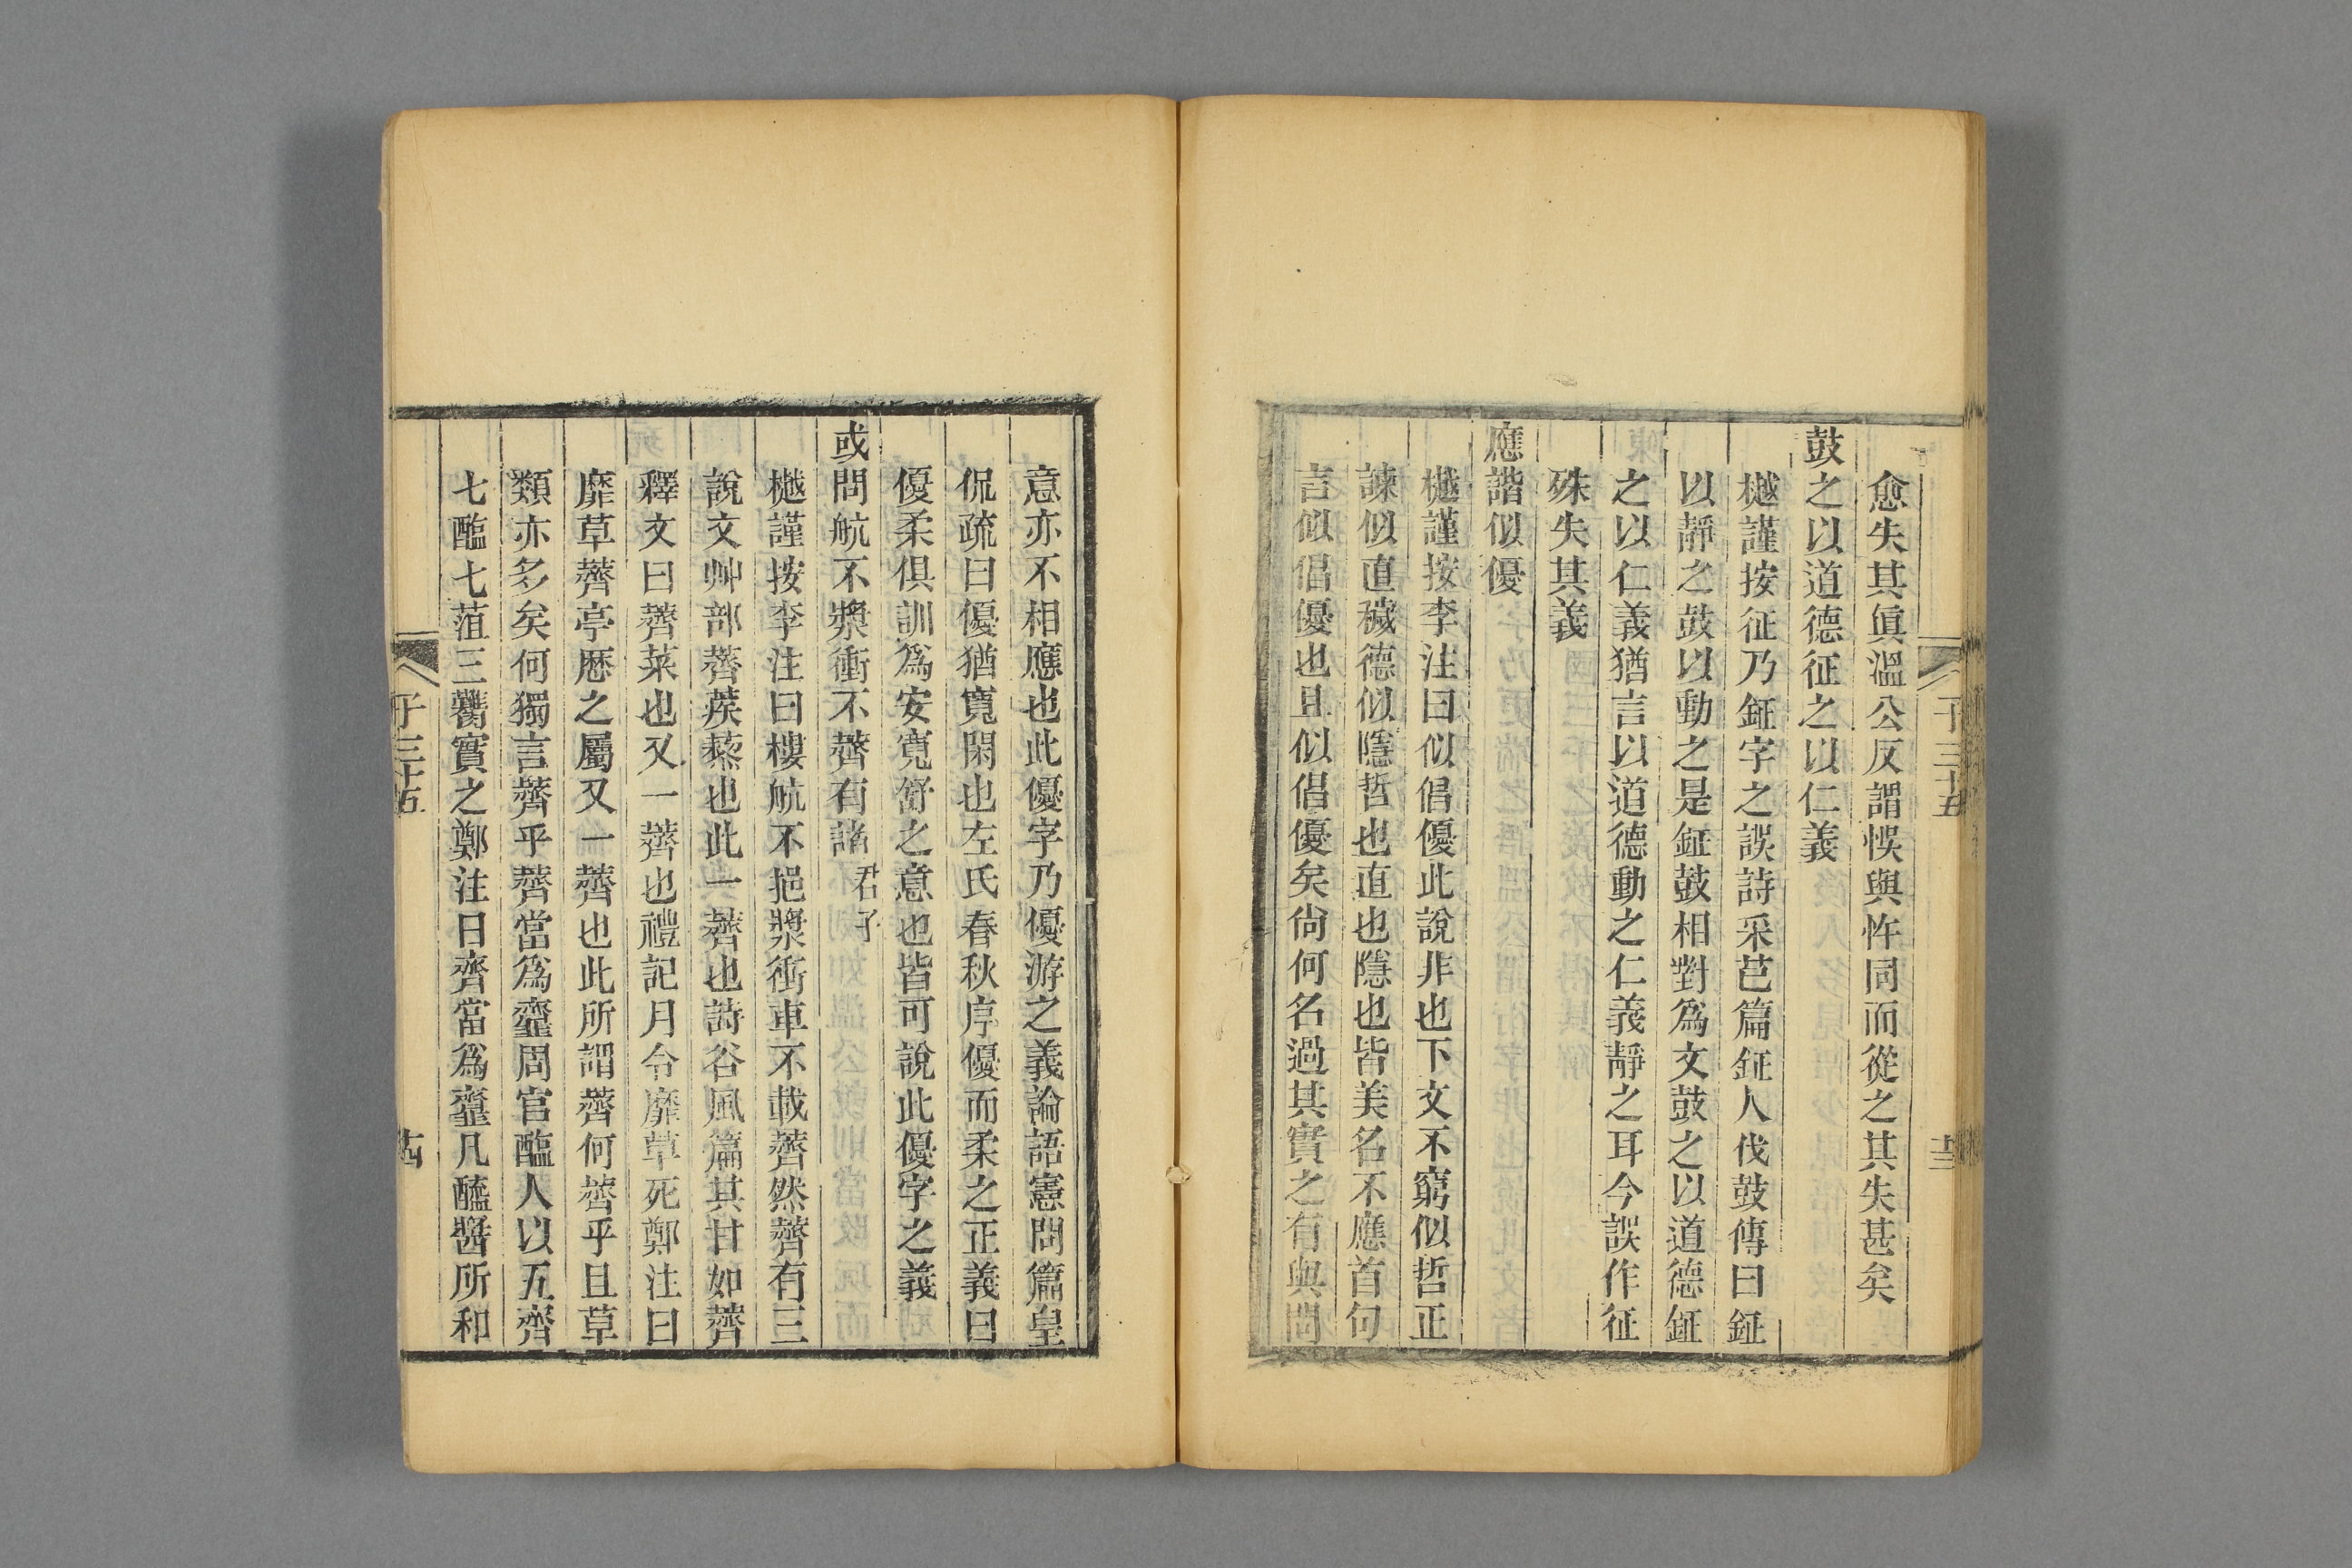 愈失其眞溫公反謂悞與忤同而從之其失甚矣
鼓之以道德征之以仁義
樾謹按征乃鉦字之誤詩采芑篇鉦人伐鼓傳曰鉦
以靜之鼓以動之是鉦鼓相對爲文鼓之以道德鉦
之以仁義猶言以道德動之仁義靜之耳今誤作征
殊失其義
應諧似優
樾謹按李注曰似倡優此說非也下文不窮似哲正
諫似直穢德似隱哲也直也隱也皆美名不應首句
言似倡優也且似倡優矣尙何名過其實之有與問
子三十五
十三
意亦不相應也此優字乃優游之義論語憲問篇皇
侃疏曰優猶寬閑也左氏春秋序優而柔之正義曰
優柔俱訓爲安寬舒之意也皆可說此優字之義
或問航不漿衝不薺有諸 君子
樾謹按李注曰樓航不挹漿衝車不載薺然薺有三
說文艸部薺蒺藜也此一薺也詩谷風篇其甘如薺
釋文曰薺菜也又一薺也禮記月令靡草死鄭注曰
靡草薺亭歷之屬又一薺也此所謂薺何薺乎且草
類亦多矣何獨言薺乎薺當爲齏周官醢人以五齊
七醢七菹三臡實之鄭注曰齊當爲齏凡醯醬所和
子三十五
十四